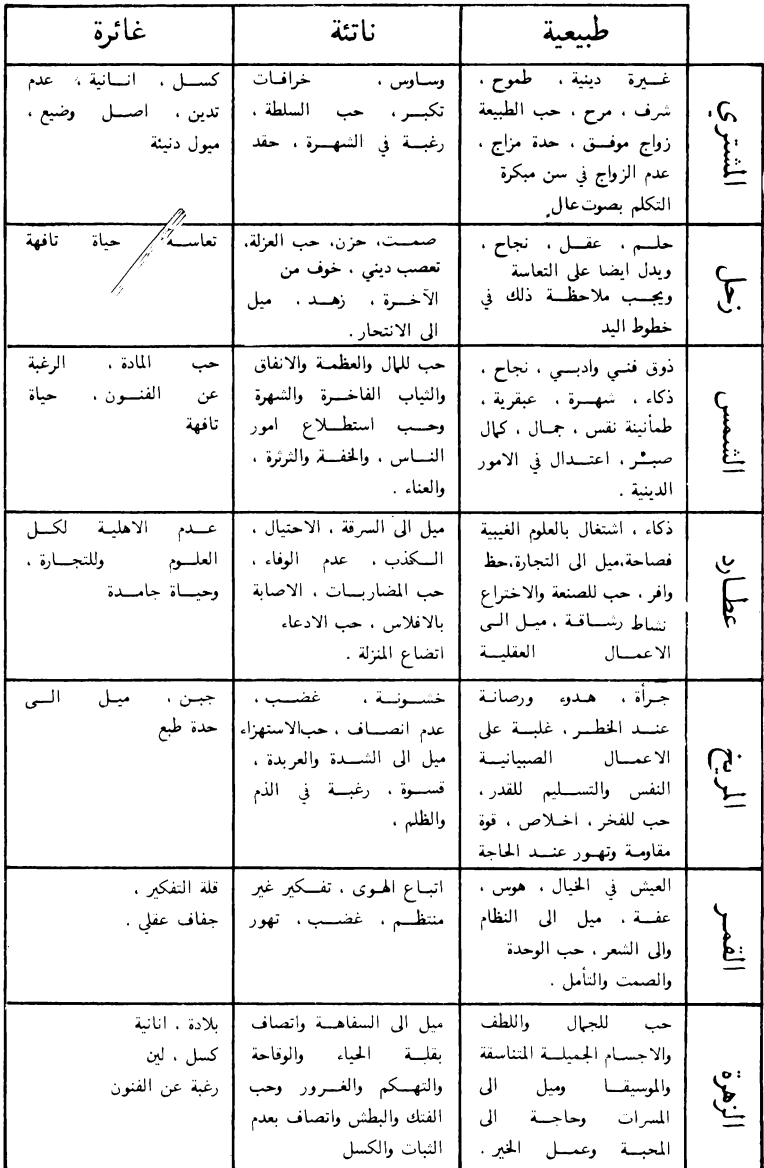 طبيعية
ناتئة
غائرة
المشتري
غيرة دينية ، طموح ،
شرف ، مرح ، حب الطبيعة
زواج موفق ، حدة مزاج ،
عدم الزواج في سن مبكرة
التكلم بصوت عال
وساوس ، خرافات
تكبر ، حب السلطة ،
رغبة في الشهرة ، حقد
كسل ، انانية ، عدم
تدين ، اصل وضيع ،
ميول دنيئة
زحل
حلم ، عقل ، نجاح ،
ويدل ايضا على التعاسة
ويجب ملاحظة ذلك في
خطوط اليد
صمت، حزن، حب العزلة،
تعصب ديني ، خوف من
الآخرة ، زهد ، ميل
الى الانتحار .
تعاسة حياة تافهة
الشمس
ذوق فني وادبي ، نجاح ،
ذكاء ، شهرة ، عبقرية ،
طمأنينة نفس ، جمال ، كمال
صبر ، اعتدال في الامور
الدينية .
حب للمال والعظمة والانفاق
والثياب الفاخرة والشهرة
وحب استطلاع امور
الناس ، والخفة والثرثرة ،
والعناء .
حب المادة ، الرغبة
عن الفنون ، حياة
تافهة
عطارد
ذكاء ، اشتغال بالعلوم الغيبية
فصاحة،ميل الى التجارة،حظ
وافر ، حب للصنعة والاختراع
نشاط رشاقة ، ميل الى
الاعمال العقلية
ميل الى السرقة ، الاحتيال ،
الكذب ، عدم الوفاء ،
حب المضاربات ، الاصابة
بالافلاس ، حب الادعاء
اتضاع المنزلة .
عدم الاهلية لكل
العلوم وللتجارة ،
وحياة جامدة
المريخ
جرأة ، هدوء ورصانة
عند الخطر ، غلبة على
الاعمال الصبيانية
النفس والتسليم للقدر ،
حب للفخر ، اخلاص ، قوة
مقاومة وتهور عند الحاجة
خشونة ، غضب ،
عدم انصاف ، حب الاستهزاء
ميل الى الشدة والعربدة ،
قسوة ، رغبة في الذم
والظلم ،
جبن ، ميل الى
حدة طبع
القمر
العيش في الخيال ، هوس ،
عفة ، ميل الى النظام
والى الشعر ، حب الوحدة
والصمت والتأمل .
اتباع الهوى ، تفكير غير
منتظم ، غضب ، تهور
قلة التفكير ،
جفاف عقلي .
الزهرة
حب للجمال واللطف
والاجسام الجميلة المتناسقة
والموسيقا وميل الى
المسرات وحاجة الى
المحبة وعمل الخير .
ميل الى السفاهة واتصاف
بقلة الحياء والوقاحة
والتهكم والغرور وحب
الفتك والبطش واتصاف بعدم
الثبات والكسل
بلادة ، انانية
كسل ، لين
رغبة عن الفنون